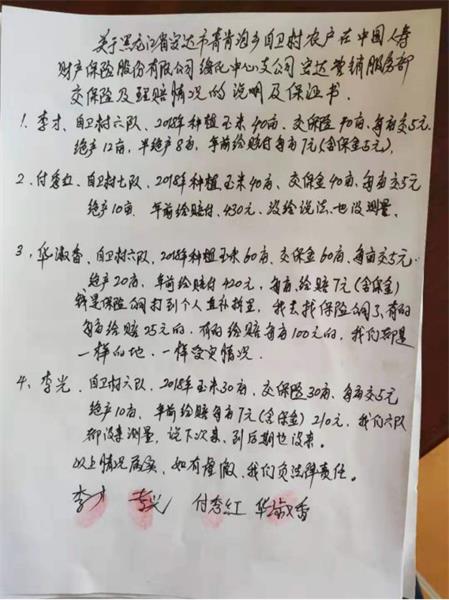 关于黑龙江省安达市青肯泡乡自卫村农户在中国人寿
财产保险股份有限公司绥化中心支公司安达营销服务部
交保险及理赔情况的说明及保证书.
1. 李才、自卫村六队、2018年种植玉米40亩、交保险40亩、每亩交5元
绝产12亩、半绝产8亩、年前给赔付每亩7元(含保金5元),
2、付秀红、自卫村七队、2018年种植玉米40亩、交保金40亩、每亩交5元
绝产10亩. 年前给赔付、430元、没给说法、也没测量、
3、华淑香、自卫村六队、2018年种植玉米60亩、交保金60亩、每亩交5元
绝产20亩、年前给赔付420元、每亩、给赔7元(含保金)
钱是保险公司打到个人直补折里、我去找保险公司了、有的
每亩给赔25元的、有的给赔每亩100元的、我们都是
一样的地、一样受灾情况.
4、李光、自卫村六队、2018年玉米30亩、交保险30亩、每亩交5元
绝产10亩、年前给赔每亩7元(含保金)210元、我们六队
都没来测量、说下次来、到后期也没来。
以上情况属实、如有虚假、我们负法律责任。
李才 李光 付秀红 华淑香